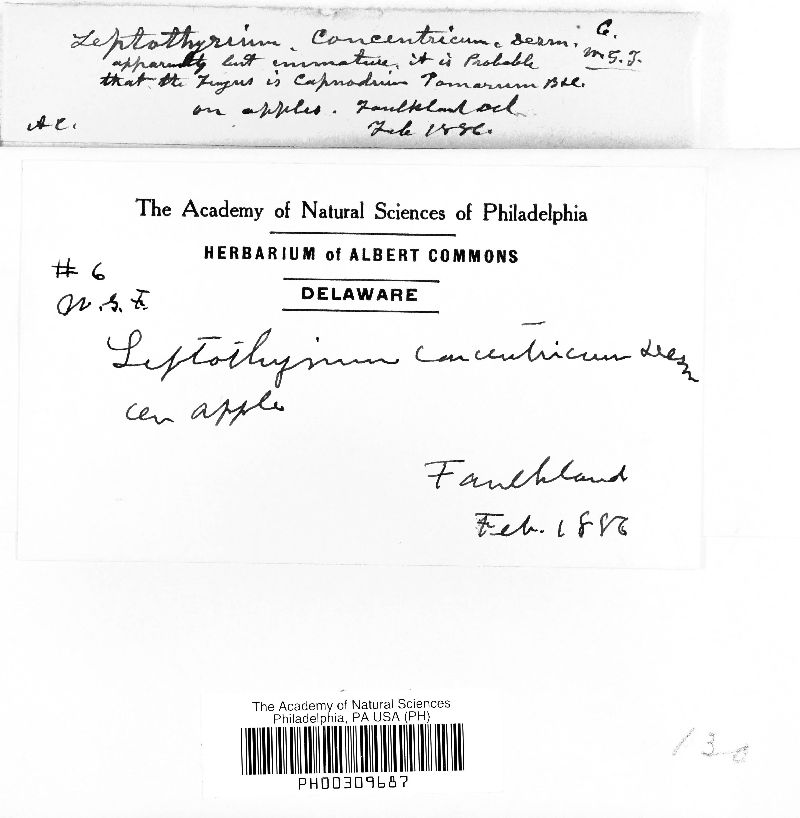 Leptothyrium Concentricum. Desm; 6.
apparently but immature, it is Probable W.G.F.
that the Fungus is Capnodium Pomorum B&C.
on apples. Faulkland Del
A C. Feb 1886.
The Academy of Natural Sciences of Philadelphia
HERBARIUM of ALBERT COMMONS
# 6
DELAWARE
W.G.F.
Leptothyrium concentricum Desm
on apple
Faulkland
Feb. 1886
The Academy of Natural Sciences
Philadelphia, PA USA (PH)
PH00309687
130